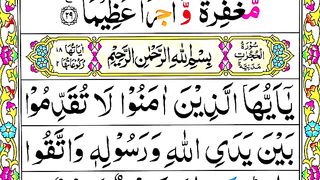 مَّغْفِرَةً وَّاَجْرًا عَظِيْمًا ۝۲۹
سُوْرَةُ الْحُجُرٰتِ مَدَنِيَّةٌ بِسْمِ اللّٰهِ الرَّحْمٰنِ الرَّحِيْمِ اٰيَاتُهَا ۱۸ رُكُوْعَاتُهَا ۲
يٰۤاَيُّهَا الَّذِيْنَ اٰمَنُوْا لَا تُقَدِّمُوْا
بَيْنَ يَدَيِ اللّٰهِ وَرَسُوْلِهٖ وَاتَّقُوا